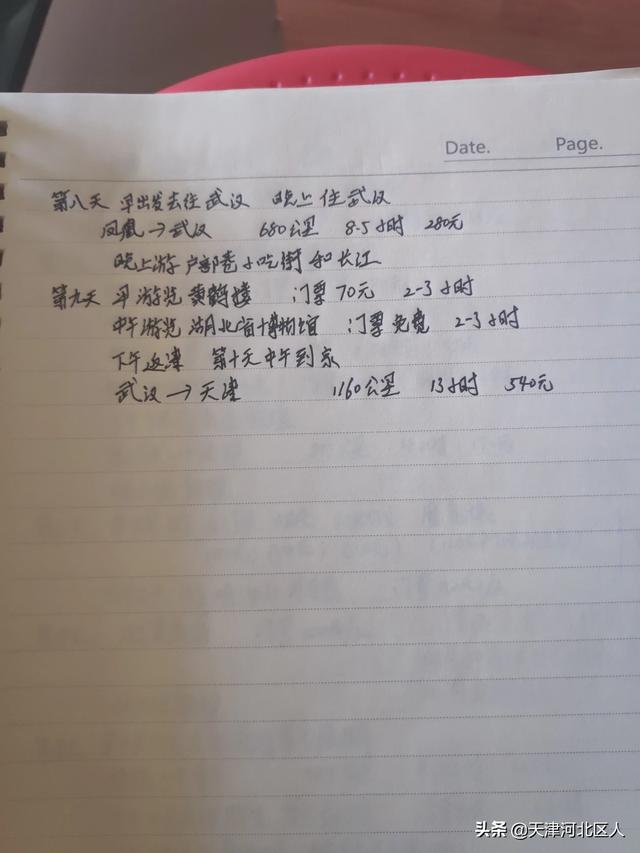 Date.
Page.
第八天 早出发去往武汉 晚上住武汉
凤凰→武汉 680公里 8.5小时 280元
晚上游户部巷小吃街和长江
第九天 早游览黄鹤楼 门票70元 2-3小时
中午游览湖北省博物馆 门票免费 2-3小时
下午返津 第十天中午到家
武汉→天津 1160公里 13小时 540元
头条 @天津河北区人